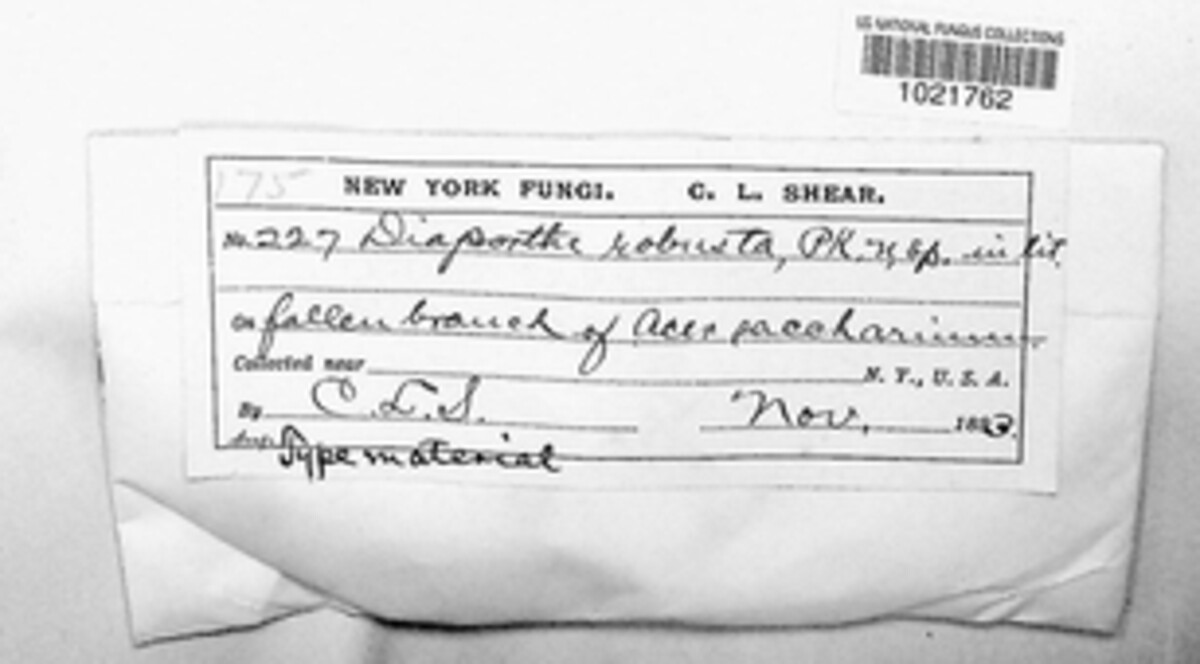 US NATIONAL FUNGUS COLLECTIONS
1021762
175 NEW YORK FUNGI. C. L. SHEAR.
No. 227 Diaporthe robusta, PK. n. sp. in lit.
On fallen branch of Acer saccharinum.
Collected near N. Y., U. S. A.
By C. L. S. Nov. 1893.
Type material